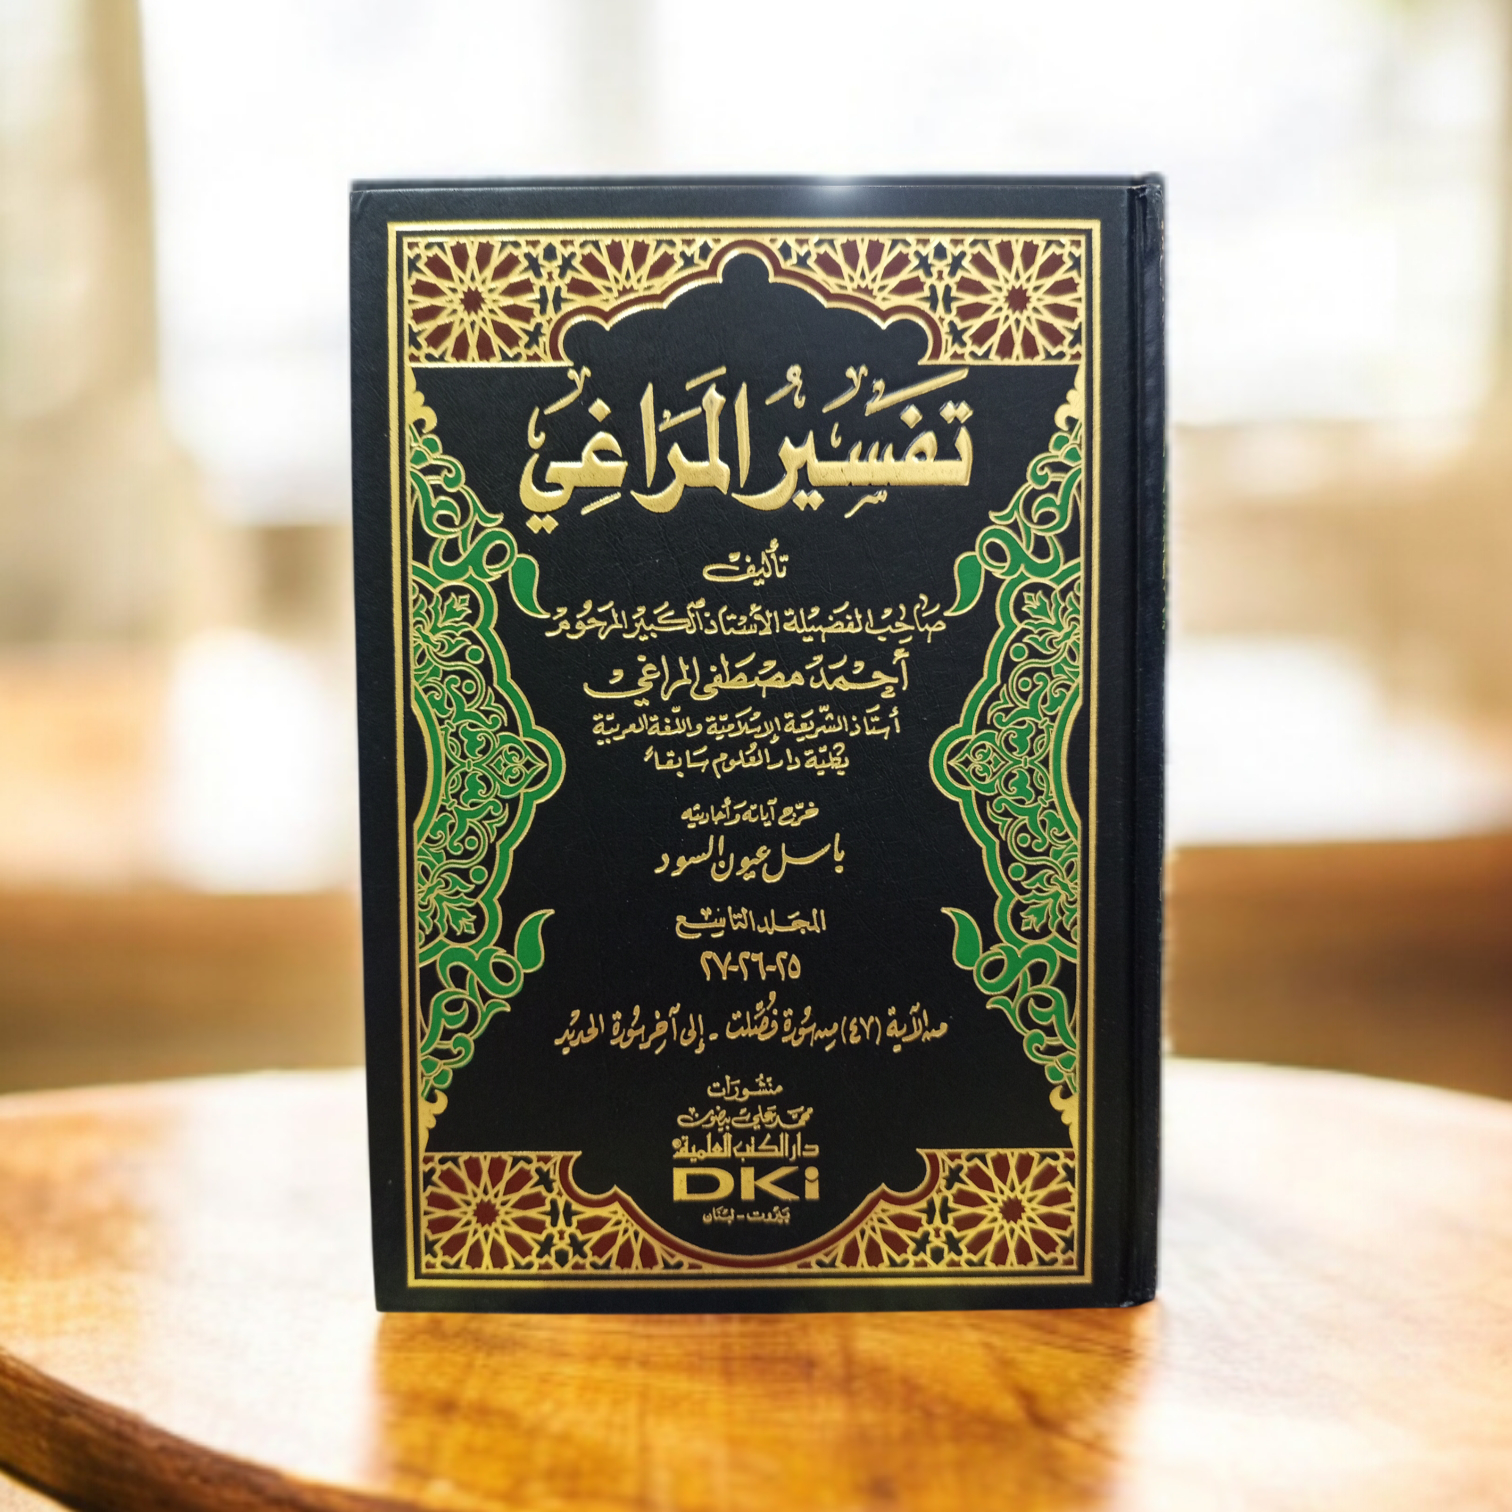 تَفْسِيرُ المَرَاغِي
تأليف
صَاحِب الفَضِيلَة الأُسْتَاذ الكَبِير المَرحُوم
أَحْمَد مُصْطَفى المراغي
أستاذ الشّريعَة الإسْلَاميّة واللّغة العربيّة
بكليّة دار العُلوم سَابقاً
خرّج آياته وَأحاديثه
باسل عيون السود
المجَلد التاسِع
٢٥-٢٦-٢٧
من الآية (٤٧) مِن سُورة فُصِّلت - إلى آخِر سُورة الحديد
منشورات
محمد علي بيضون
دار الكتب العلمية
DKi
بَيْروت - لبْنان